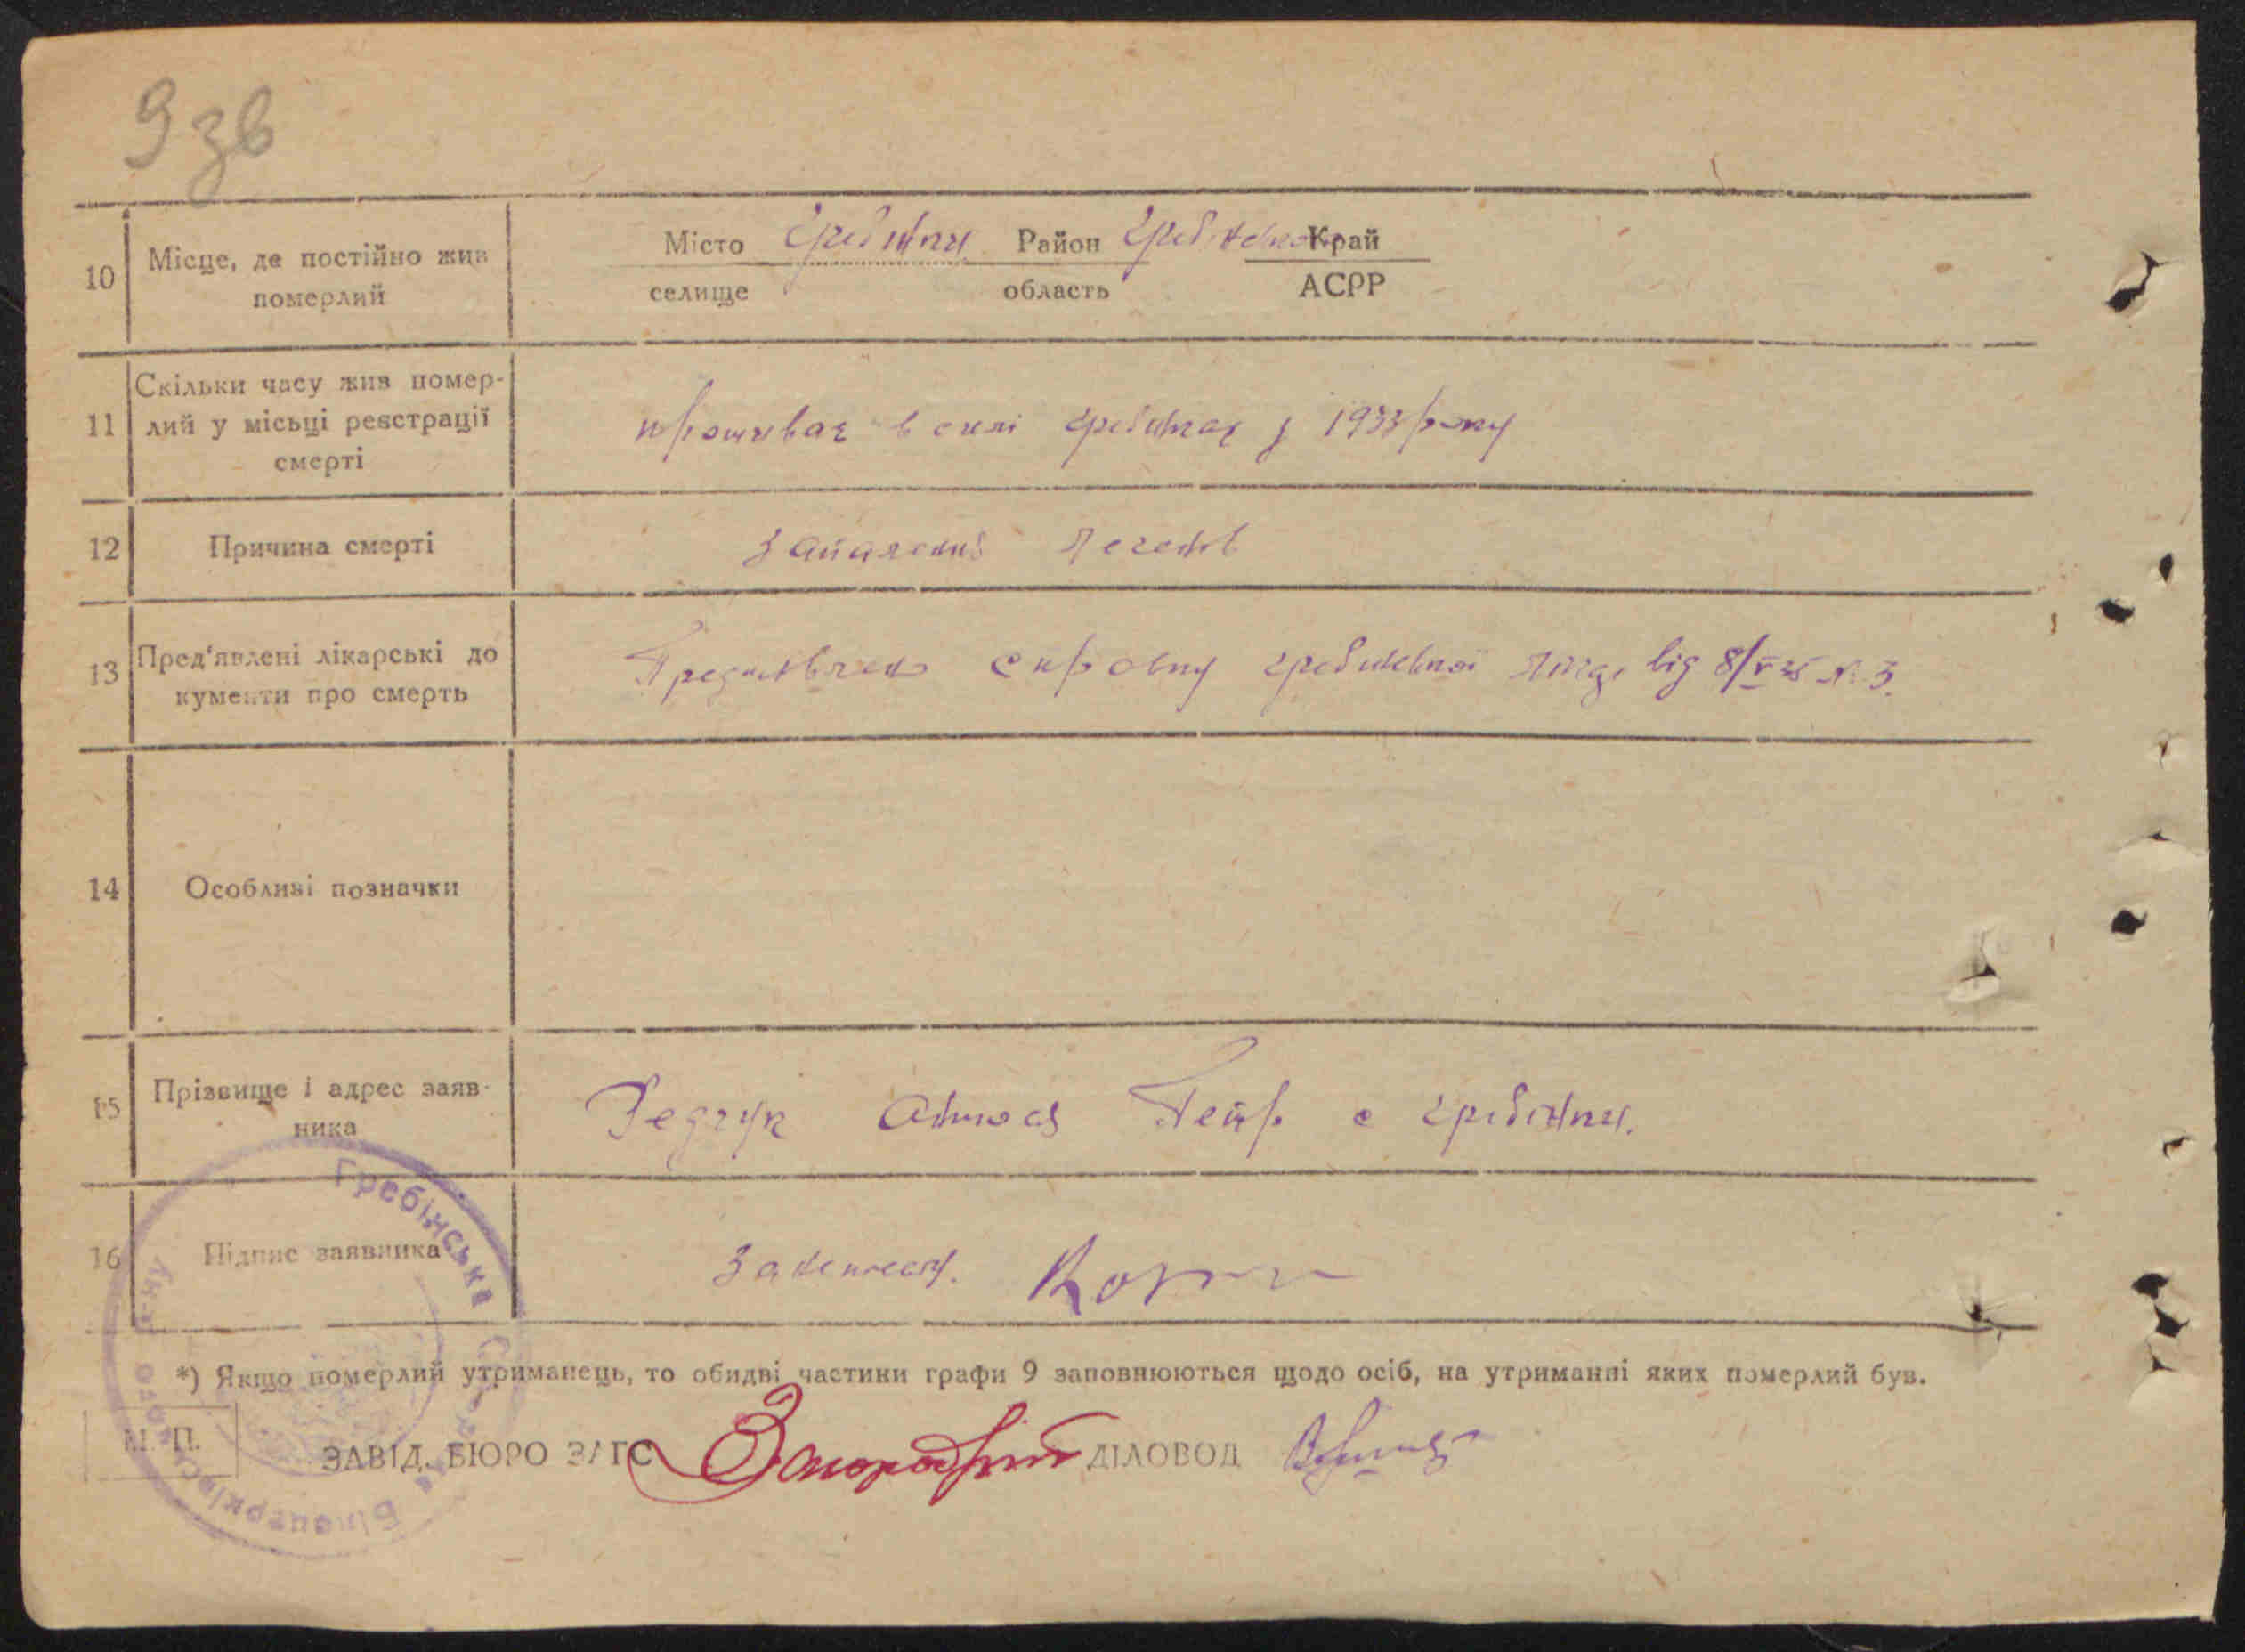 9 зв
10 Місце, де постійно жив померлий
Місто Гребінки Район Гребінський Край
селище область АСРР
11 Скільки часу жив помер-
лий у місьці реєстрації
смерті
проживає в селі Гребінках з 1933 року
12 Причина смерті
Запалення легенів
13 Пред'явлені лікарські до
кументи про смерть
справку від 8/V 35 № 3.
14 Особливі позначки
15 Прізвище і адрес заяв-
ника
Петр с Гребінки.
16 Підпис заявника
*) Якщо померлий утриманець, то обидві частини графи 9 заповнюються щодо осіб, на утриманні яких померлий був.
М. П.
ЗАВІД. БЮРО ЗАГС ДІЛОВОД
Гребінська
Білоцерківського р-ну